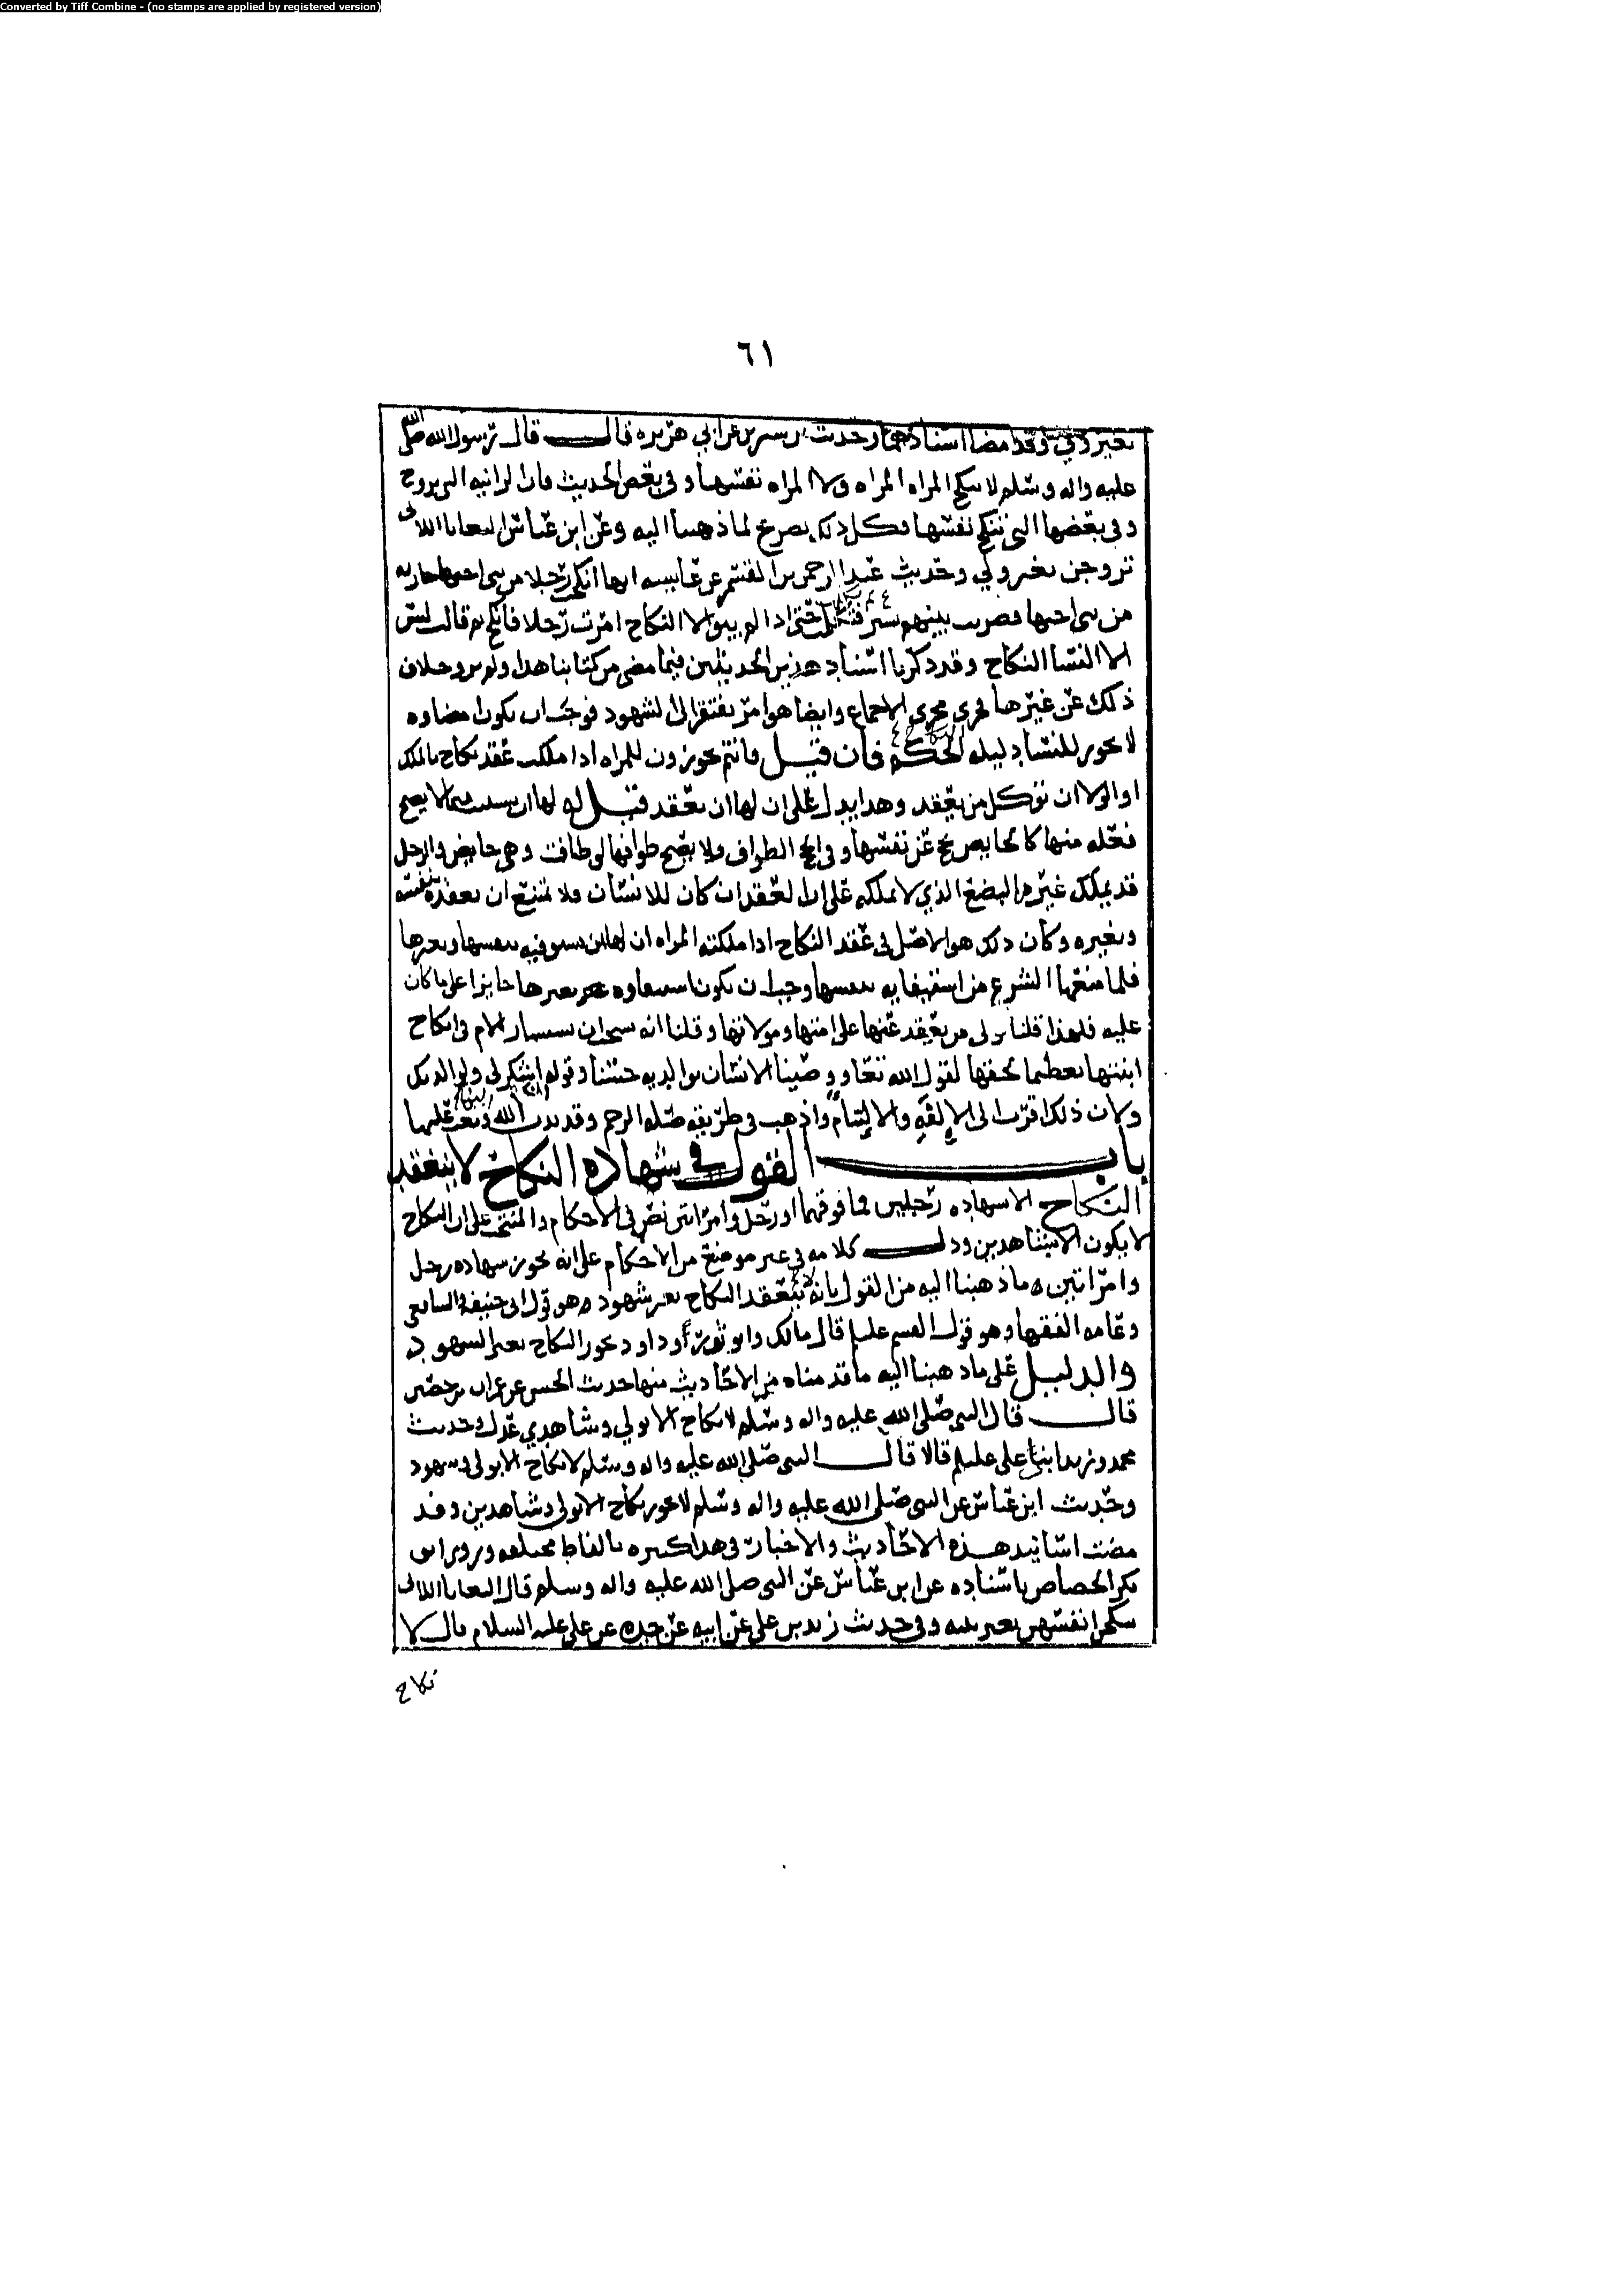 Converted by Tiff Combine - (no stamps are applied by registered version)
٦١
بغير ولي وقد مضا اسنادهما وحديث ابن سيرين عن ابي هريره قال قال رسول الله صلى الله
عليه واله وسلم لا تنكح المراه المراه ولا المراه نفسها وفي بعض الحديث فان الزانيه التي تزوج
وفي بعضها التي تنكح نفسها فكل ذلك يصرح لما ذهبنا اليه وعن ابن عباس البغايا اللاتي
تزوجن بغير ولي وحديث عبد الرحمن بن القسم عن عايشه انها انكحت رجلا من بني اخيها جاريه
من بني اخيها فضربت بينهم بستر ثم تكلمت حتى اذا لم يبق الا النكاح امرت رجلا فانكح ثم قالت ليس
الا النسا النكاح وقد ذكرنا اسناد هذين الحديثين فيما مضى من كتابنا هذا ولم يرو خلاف
ذلك عن غيرها فجرى مجرى الاجماع وايضا هو امر يفتقر الى الشهود فوجب ان يكون امضاوه
لا يجوز للنسا دليله الحكم فان قيل فانتم تجوزون للمراه اذا ملكت عقد نكاح بالملك
او الولا ان توكل من يعقد وهذا يدل على ان لها ان تعقد قيل له لها ان تسبب فيما لا يصح
فعله منها كالحايض عن نفسها وفي الطواف ولا يصح طوافها لو طافت وهي حايض والرجل
قد يملك غيره البضع الذي لا يملكه على ان العقد ان كان للانسان فلا يمتنع ان يعقده بنفسه
وبغيره وكان ذلك هو الاصل في عقد النكاح اذا ملكته المراه ان لها ان تستوفيه بنفسها وبغيرها
فلما منعها الشرع من استيفايه بنفسها وجب ان يكون استيفاوه بغيرها جايزا على ما كان
عليه فلهذا قلنا تولى من يعقد عنها على امتها ومولاتها وقلنا انه يستحب ان تستشار الام في انكاح
ابنتها تعظيما لحقها لقول الله تعالى ووصينا الانسان بوالديه حسنا وقوله ان اشكر لي ولوالديك
ولان ذلك اقرب الى الالفه والالتيام واذهب في طريقه صله الرحم وقد ندب الله وبعث عليها
باب القول في شهاده النكاح لا ينعقد
النكاح الا بشهاده رجلين فما فوقهما او رجل وامراتين نص في الاحكام والمنتخب على ان النكاح
لا يكون الا بشاهدين ودل كلامه في غير موضع من الاحكام على انه يجوز شهاده رجل
وامراتين ه ما ذهبنا اليه من القول بانه لا ينعقد النكاح بغير شهود هو قول ابي حنيفه والشافعي
وعامه الفقها وهو قول القسم عليلم قال مالك وابو ثور وداود يجوز النكاح بغير الشهود ه
والدليل على ما ذهبنا اليه ما قدمناه من الاحاديث منها حديث الحسن عن عمران بن حصين
قال قال النبي صلى الله عليه واله وسلم لا نكاح الا بولي وشاهدي عدل وحديث
محمد وزيد ابني علي عليلم قالا قال النبي صلى الله عليه واله وسلم لا نكاح الا بولي وشهود
وحديث ابن عباس عن النبي صلى الله عليه واله وسلم لا يجوز نكاح الا بولي وشاهدين وقد
مضت اسانيد هذه الاحاديث والاخبار في هذا كثيره بالفاظ مختلفه وروى ابو
بكر الجصاص باسناده عن ابن عباس عن النبي صلى الله عليه واله وسلم قال البغايا اللاتي
ينكحن انفسهن بغير بينه وفي حديث زيد بن علي عن ابيه عن جده عن علي عليه السلام قال لا
نكاح